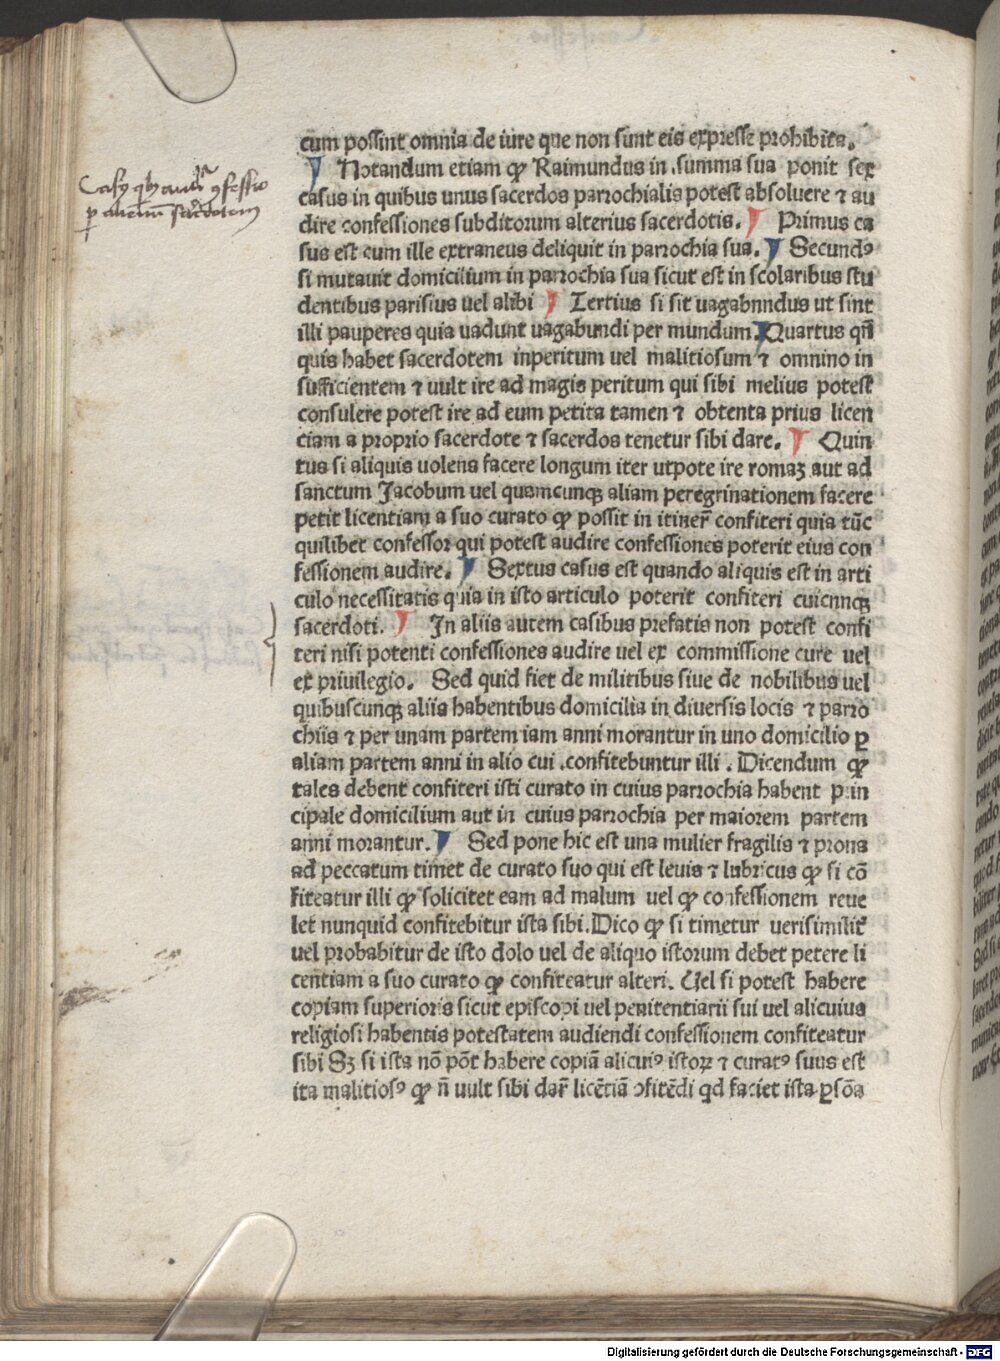 cum possint omnia de iure que non sunt eis expresse prohibita.
Notandum etiam ꝙ Raimundus in .summa sua ponit sex
casus in quibus unus sacerdos parrochialis potest absoluere ⁊ au
dire confessiones subditorum alterius sacerdotis. Primus ca
sus est cum ille extraneus deliquit in parrochia sua. Secundꝰ
si mutauit domicilium in parrochia sua sicut est in scolaribus stu
dentibus parisius uel alibi Tertius si sit uagabnndus ut sint
illi pauperes quia uadunt uagabundi per mundum. Quartus qn̄
quis habet sacerdotem inperitum uel malitiosum ⁊ omnino in
sufficientem ⁊ uult ire ad magis peritum qui sibi melius potest
consulere potest ire ad eum petita tamen ⁊ obtenta prius licen
ciam a proprio sacerdote ⁊ sacerdos tenetur sibi dare. Quin
tus si aliquis uolens facere longum iter utpote ire romaꝫ aut ad
sanctum Jacobum uel quamcunqꝫ aliam peregrinationem facere
petit licentiam a suo curato ꝙ possit in itiner̄ confiteri quia tūc
quilibet confessor qui potest audire confessiones poterit eius con
fessionem audire. Sextus casus est quando aliquis est in arti
culo necessitatis quia in isto articulo poterit confiteri cuicunqꝫ
sacerdoti. In aliis autem casibus prefatis non potest confi
teri nisi potenti confessiones audire uel ex commissione cure uel
ex priuilegio. Sed quid fiet de militibus siue de nobilibus uel
quibuscunqꝫ aliis habentibus domicilia in diuersis locis ⁊ parro
chiis ⁊ per unam partem iam anni morantur in uno domicilio ꝑ
aliam partem anni in alio cui .confitebuntur illi . Dicendum ꝙ
tales debent confiteri isti curato in cuius parrochia habent prin
cipale domicilium aut in cuius parrochia per maiorem partem
anni morantur. Sed pone hic est una mulier fragilis ⁊ prona
ad peccatum timet de curato suo qui est leuis ⁊ lubricus ꝙ si cō
fiteatur illi ꝙ solicitet eam ad malum uel ꝙ confessionem reue
let nunquid confitebitur ista sibi. Dico ꝙ si timetur uerisimilit̄
uel probabitur de isto dolo uel de aliquo istorum debet petere li
centiam a suo curato ꝙ confiteatur alteri. Uel si potest habere
copiam superioris sicut episcopi uel penitentiarii sui uel alicuius
religiosi habentis potestatem audiendi confessionem confiteatur
sibi Sꝫ si ista nō pōt habere copiā alicuiꝰ istoꝝ ⁊ curatꝰ suus est
ita malitiosꝰ ꝙ n̄ uult sibi dar̄ licētiā ꝯfitēdi qd faciet ista ꝑsōa
Digitalisierung gefördert durch die Deutsche Forschungsgemeinschaft - DFG